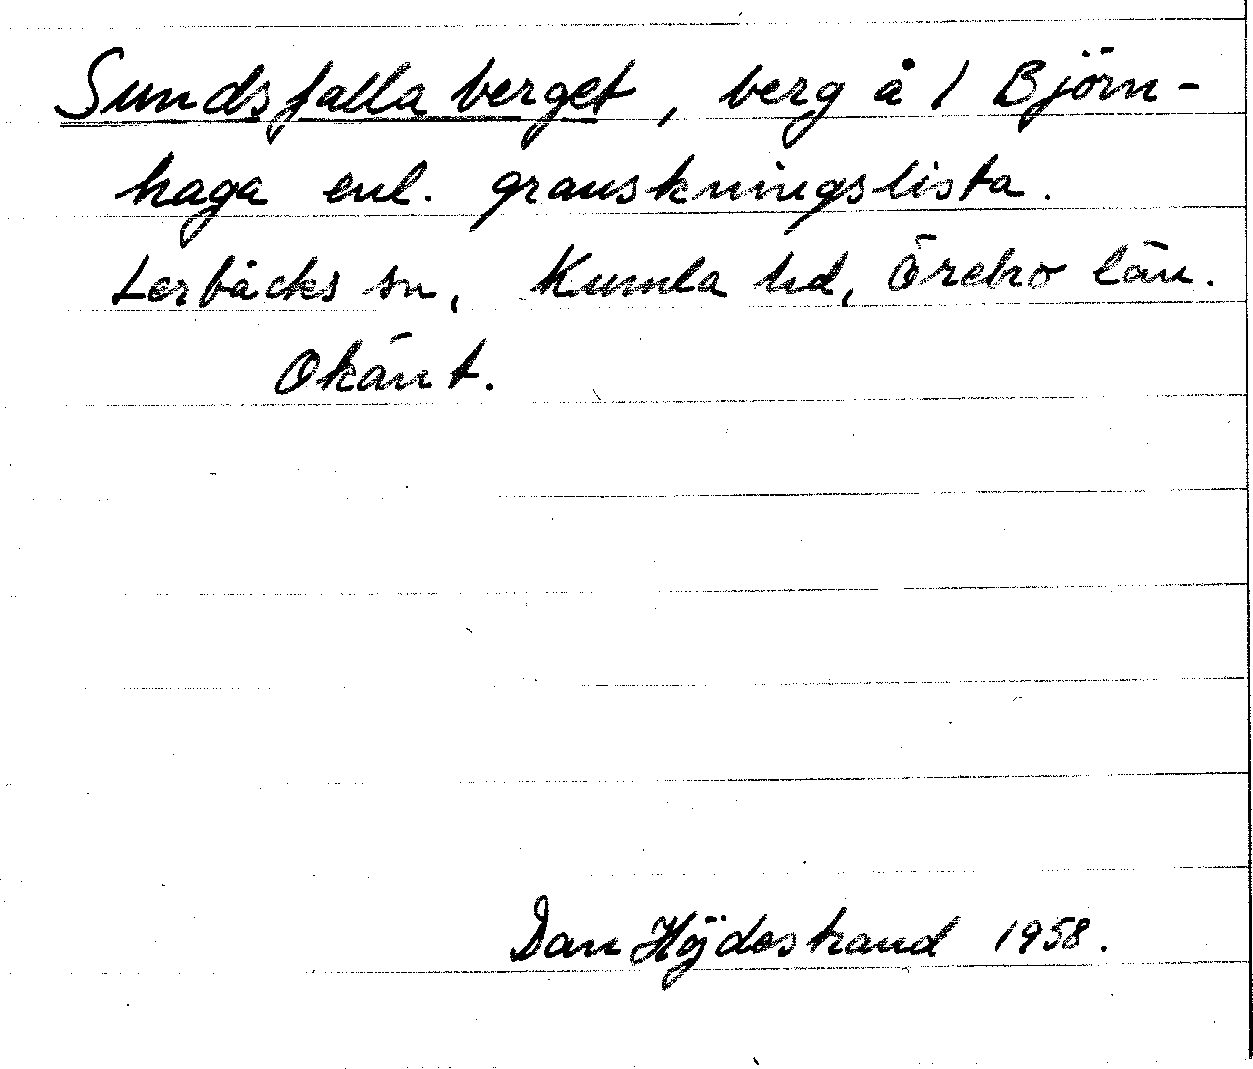 Sundsfallaberget, berg å 1 Björn-
haga enl. granskningslista.
Lerbäcks sn, Kumla hd, Örebro län.
Okänt.
Dan Höjdestrand 1958.